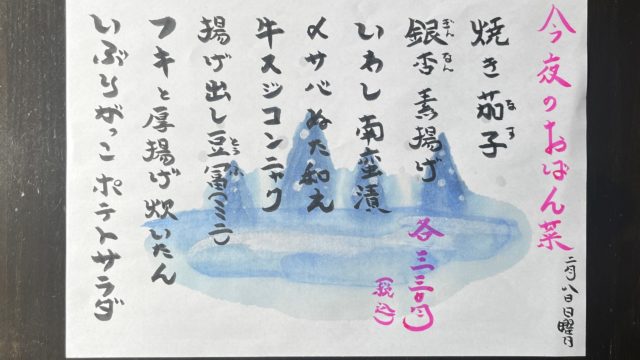 二月八日日曜日
今夜のおばん菜
焼き茄子
なす
銀杏素揚げ
ぎんなん
いわし南蛮漬
〆サバぬた和え
牛スジコンニャク
揚げ出し豆富(ミニ)
とうふ
フキと厚揚げ炊いたん
いぶりがっこポテトサラダ
各三三〇円
(税込)